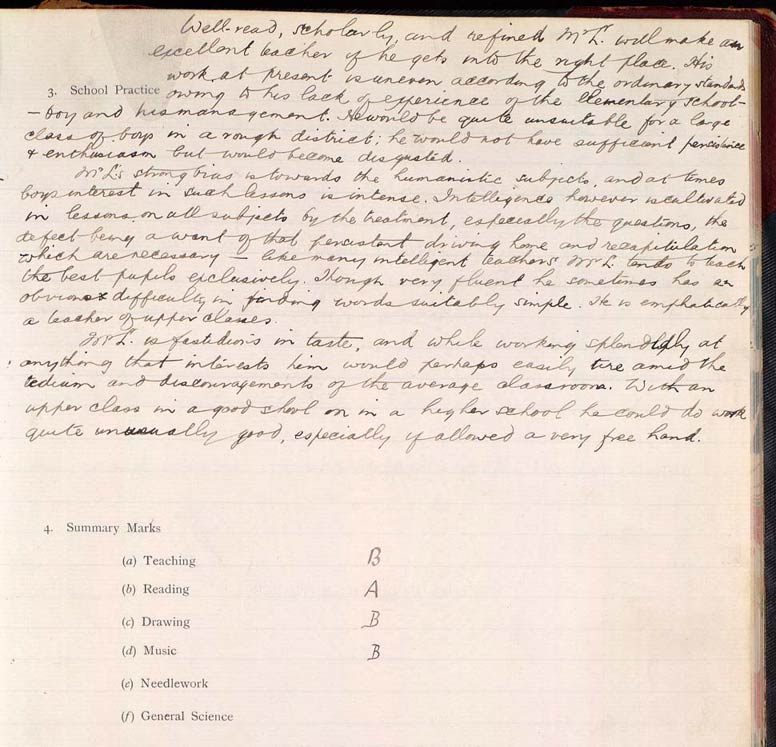 Well-read, scholarly, and refined Mr L. will make an
excellent teacher if he gets into the right place. His
work at present is uneven according to the ordinary standards
3. School Practice owing to his lack of experience of the Elementary school-
- boy and his management. He would be quite unsuitable for a large
class of boys in a rough district; he would not have sufficient persistence
& enthusiasm but would become disgusted.
Mr L's strong bias is towards the humanistic subjects, and at times
boys interest in such lessons is intense. Intelligence however is cultivated
in lessons on all subjects by the treatment, especially the questions, the
defect being a want of that persistent driving home and recapitulation
which are necessary — like many intelligent teachers Mr L. tends to teach
the best pupils exclusively. Though very fluent he sometimes has an
obvious difficulty in finding words suitably simple. He is emphatically
a teacher of upper classes.
Mr L. is fastidious in taste, and while working splendidly at
anything that interests him would perhaps easily tire amid the
tedium and discouragements of the average classroom. With an
upper class in a good school or in a higher school he could do work
quite unusually good, especially if allowed a very free hand.
4. Summary Marks
(a) Teaching B
(b) Reading A
(c) Drawing B
(d) Music B
(e) Needlework
(f) General Science